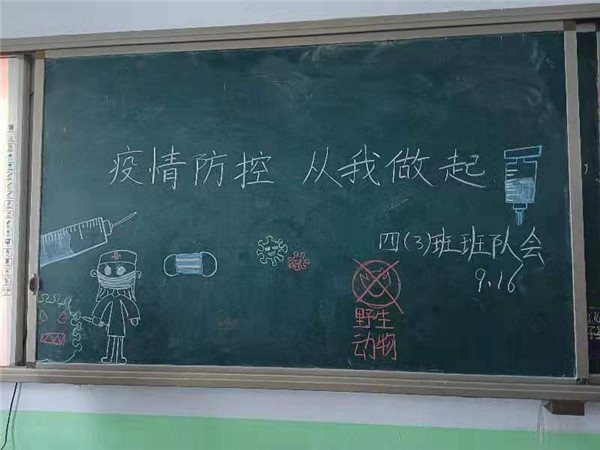 疫情防控 从我做起
四(3)班班队会
9.16
野生
动物